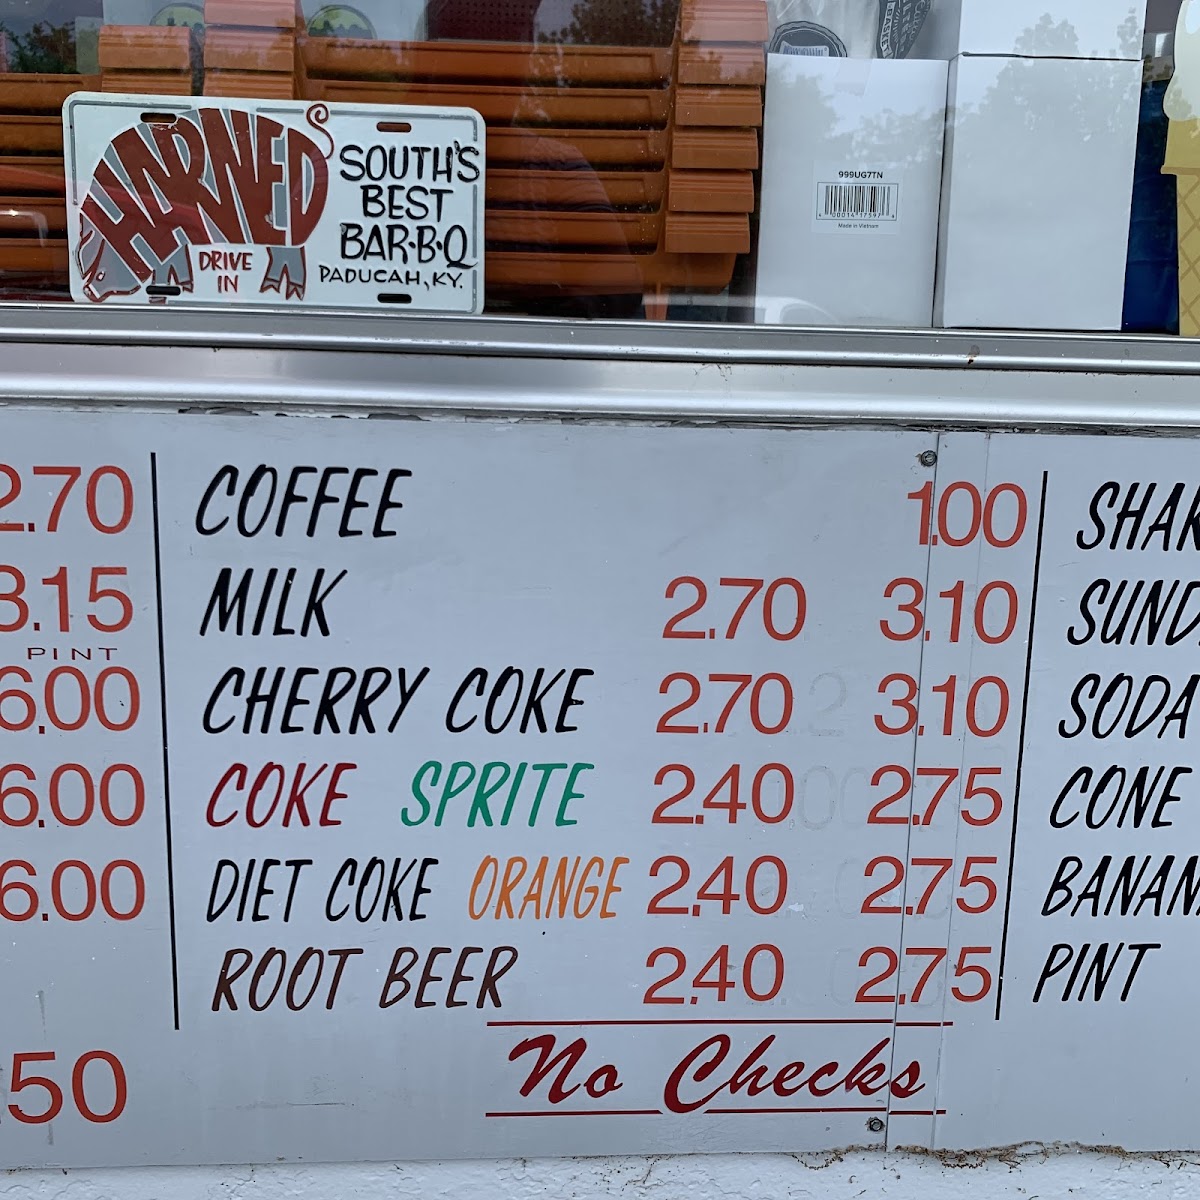 HARNED
DRIVE
IN
SOUTH'S
BEST
BAR-B-Q
PADUCAH, KY.
999UG7TN
Made in Vietnam
2.70
3.15
PINT
6.00
6.00
6.00
.50
COFFEE 1.00
MILK 2.70 3.10
CHERRY COKE 2.70 3.10
COKE SPRITE 2.40 2.75
DIET COKE ORANGE 2.40 2.75
ROOT BEER 2.40 2.75
No Checks
SHAK
SUND
SODA
CONE
BANAN
PINT